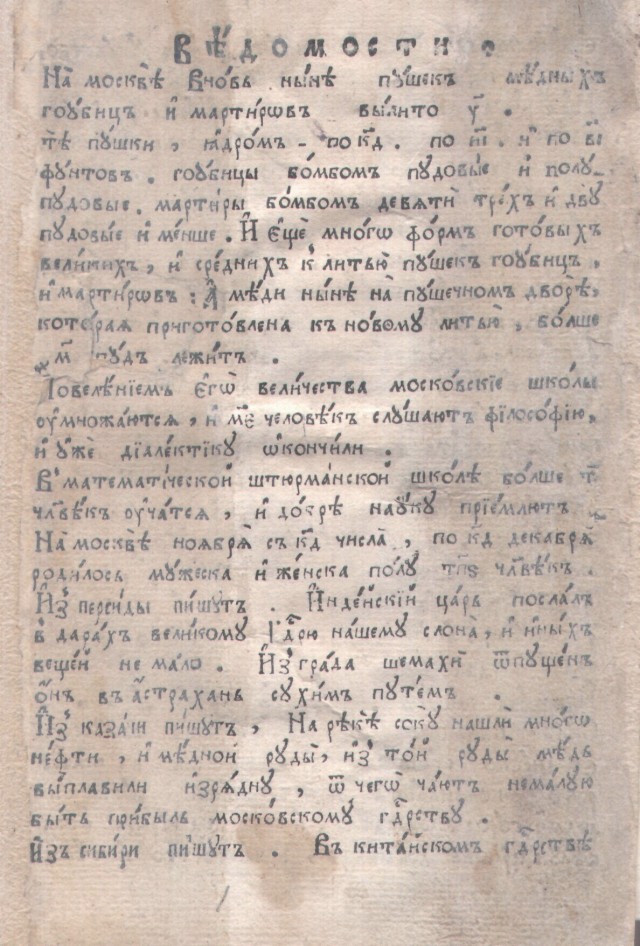 ВѢ́ДОМОСТИ .
На̀ москвѣ̀ внов̾ь ны́нѣ пу́шекъ мѣ́дныхъ
гоубицъ и҆ марти́рѡвъ вы́лито у҃ .
тѣ̀ пу́шки , ꙗ҆дро́мъ - по к҃д . по и҃і . и҆ по в҃і
фу́нтовъ . гоубицы бо́мбомъ пудовы́е и҆ полу-
пудовые . марти́ры бо́мбомъ девятѝ тре́хъ и҆ дву
пудовы́е и҆ ме́нше . И҆ є҆щѐ мно́гѡ фо́рмъ гото́выхъ
вели́кихъ , и҆ сре́днихъ к̾ литью̀ пу́шекъ гоубицъ ,
и҆ марти́рѡвъ : А҆ мѣ́ди ны́нѣ на̀ пушечномъ дворѣ̀ ,
кото́рая пригото́влена къ но́вому литью̀ , бо́лше
҂м҃ пудъ лежи́тъ .
Повелѣ́нїемъ є҆гѡ̀ вели́чества моско́вскїе шко́лы
оумножа́ются , и҆ м҃е человѣ́къ слу́шаютъ фїлосо́фїю ,
и҆ ужѐ дїале́ктїку ѡ҆ко́нчили .
В̾ математи́ческой штюрма́нской шко́лѣ бо́лше т҃
чл҃вѣ́къ оуча́тся , и҆ до́брѣ нау́ку прїе́млютъ .
На̀ москвѣ̀ ноября̀ съ к҃д числа̀ , по к҃д декабря̀
роди́лось му́жеска и҆ же́нска по́лу т҃п҃ѕ чл҃вѣ́къ .
И҆з̾ перси́ды пи́шутъ . И҆нде́йскїй ца́рь посла́лъ
в̾ дара́хъ вели́кому Г҃дрю на́шему слона̀ , и҆ и҆ны́хъ
веще́й не ма́ло . И҆з̾ гра́да шемахѝ ѿпу́щенъ
о҆́нъ въ а҆́страхань сухи́мъ путе́мъ .
И҆з̾ каза́ни пи́шутъ , На рѣкѣ̀ соку̀ нашлѝ мно́гѡ
не́фти , и҆ мѣ́дной руды̀ , и҆з̾ то́й руды̀ мѣ́дь
вы́плавили и҆зря́дну , ѿ чегѡ̀ ча́ютъ нема́лую
бы́ть при́быль моско́вскому гд҃рству .
И҆зъ сиби́ри пи́шутъ . Въ кита́йскомъ гд҃рствѣ